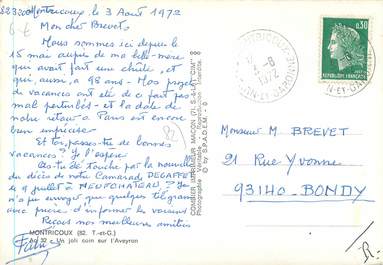 82320 Montricoux le 3 Août 1972
Mon cher Brevet
Nous sommes ici depuis le
15 mai auprès de ma belle-mère
qui avait fait une chûte, et
qui, aussi, a 98 ans. Mes projets
de vacances ont été de ce fait pas
mal perturbés - et la date de
notre retour à Paris est encore
bien imprécise.
Et toi, passes-tu de bonnes
vacances? Je l'espère.
As-tu été touché par la nouvelle
du décès de notre Camarade DEGAFFE
le 9 juillet à NEUFCHATEAU? Je
n'a pu envoyer que quelques télégrammes
avec prière d'informer les voisins
Reçois nos meilleures amitiés
82
MONTRICOUX (82. T.-et-G.)
Au 32 « Un joli coin sur l'Aveyron
COMBIER IMPRIMEUR MACON (71. S.-et-L.) "CIM"
Photographie Véritable - Reproduction Interdite
© by S.P.A.D.E.M.
MONTRICOUX
3-8
1972
TARN-ET-GARONNE
REPUBLIQUE FRANÇAISE
0,30
N-ET-GARONNE
Monsieur M. BREVET
21 Rue Yvonne
93140 - BONDY